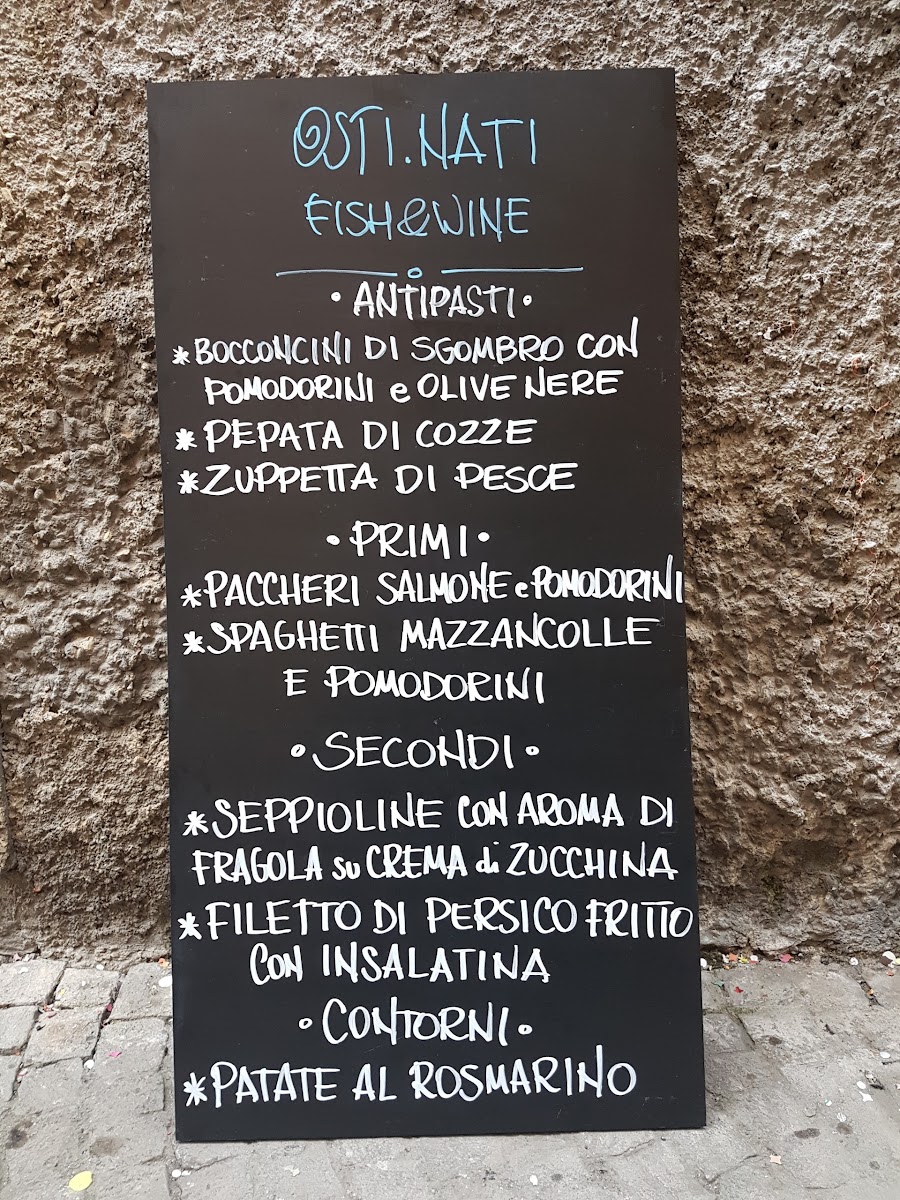 OSTI.NATI
FISH&WINE
• ANTIPASTI •
*BOCCONCINI DI SGOMBRO CON
POMODORINI e OLIVE NERE
* PEPATA DI COZZE
*ZUPPETTA DI PESCE
• PRIMI •
*PACCHERI SALMONE e POMODORINI
*SPAGHETTI MAZZANCOLLE
E POMODORINI
• SECONDI •
*SEPPIOLINE CON AROMA DI
FRAGOLA su CREMA di ZUCCHINA
*FILETTO DI PERSICO FRITTO
CON INSALATINA
• CONTORNI •
*PATATE AL ROSMARINO